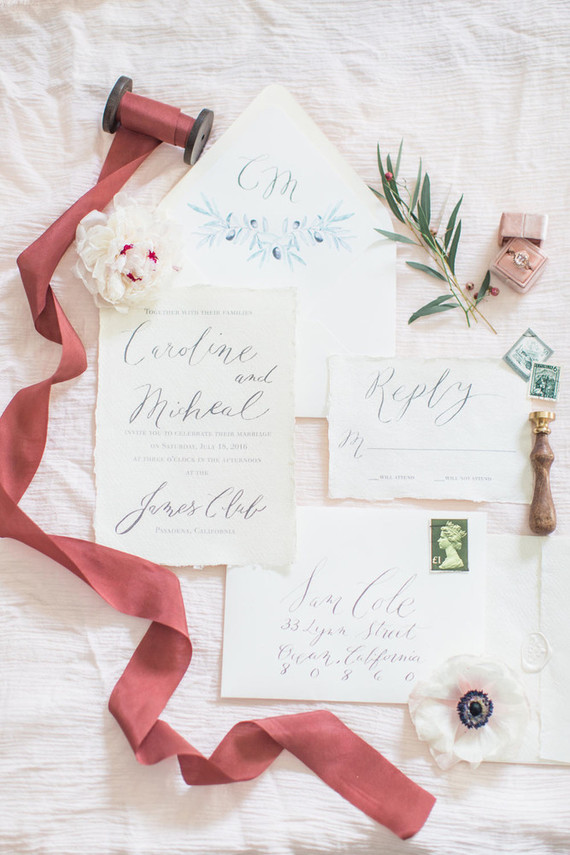 CM
Together with their families
Caroline
and
Micheal
invite you to celebrate their marriage
on Saturday, July 18, 2016
at three o'clock in the afternoon
at the
James Club
Pasadena, California
Reply
M
__will attend __will not attend
£1
Sam Cole
33 Lynn Street
Ocean, California
80860